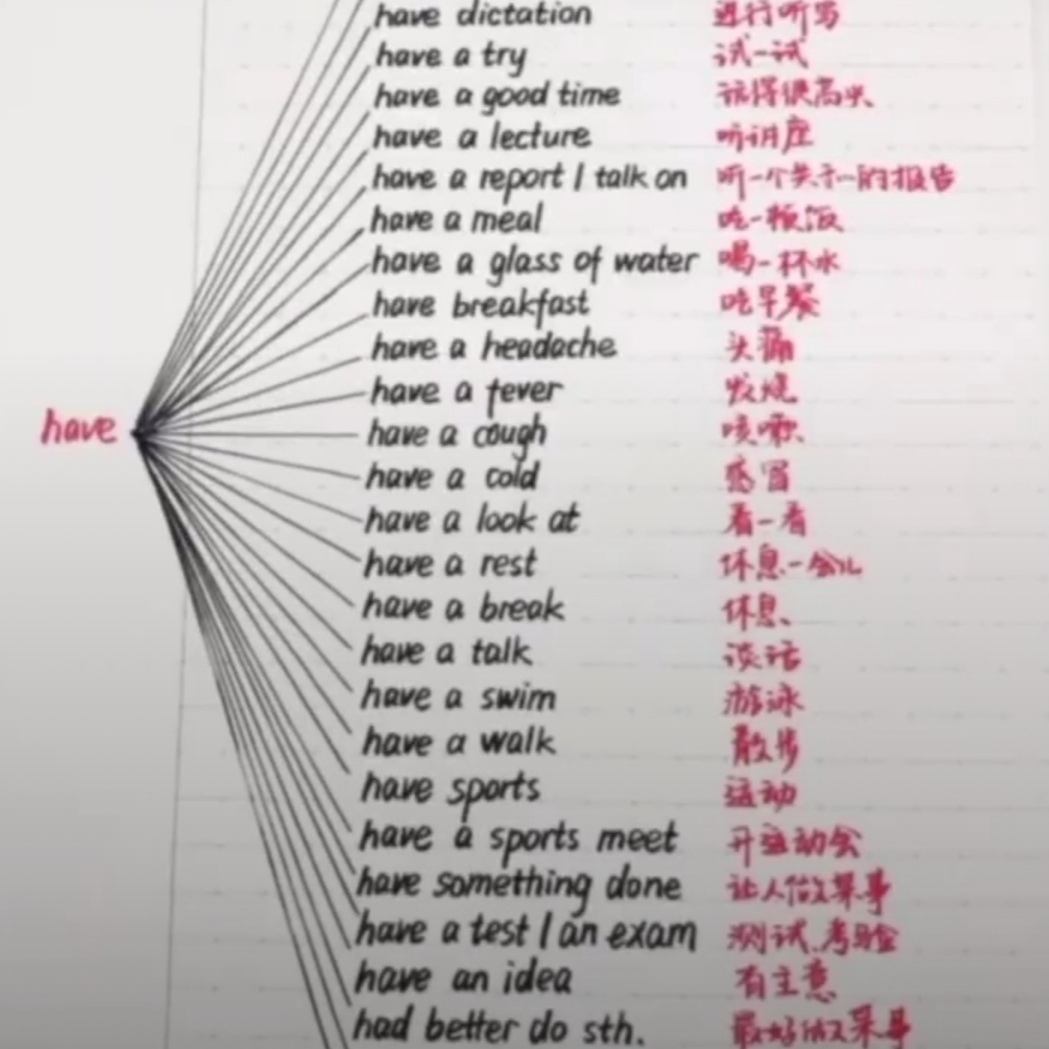 have dictation 进行听写
have a try 试一试
have a good time 玩得很高兴
have a lecture 听讲座
have a report / talk on 听一个关于…的报告
have a meal 吃一顿饭
have a glass of water 喝一杯水
have breakfast 吃早餐
have a headache 头痛
have a fever 发烧
have
have a cough 咳嗽
have a cold 感冒
have a look at 看一看
have a rest 休息一会儿
have a break 休息
have a talk 谈话
have a swim 游泳
have a walk 散步
have sports 运动
have a sports meet 开运动会
have something done 让人做某事
have a test / an exam 测试、考验
have an idea 有主意
had better do sth. 最好做某事